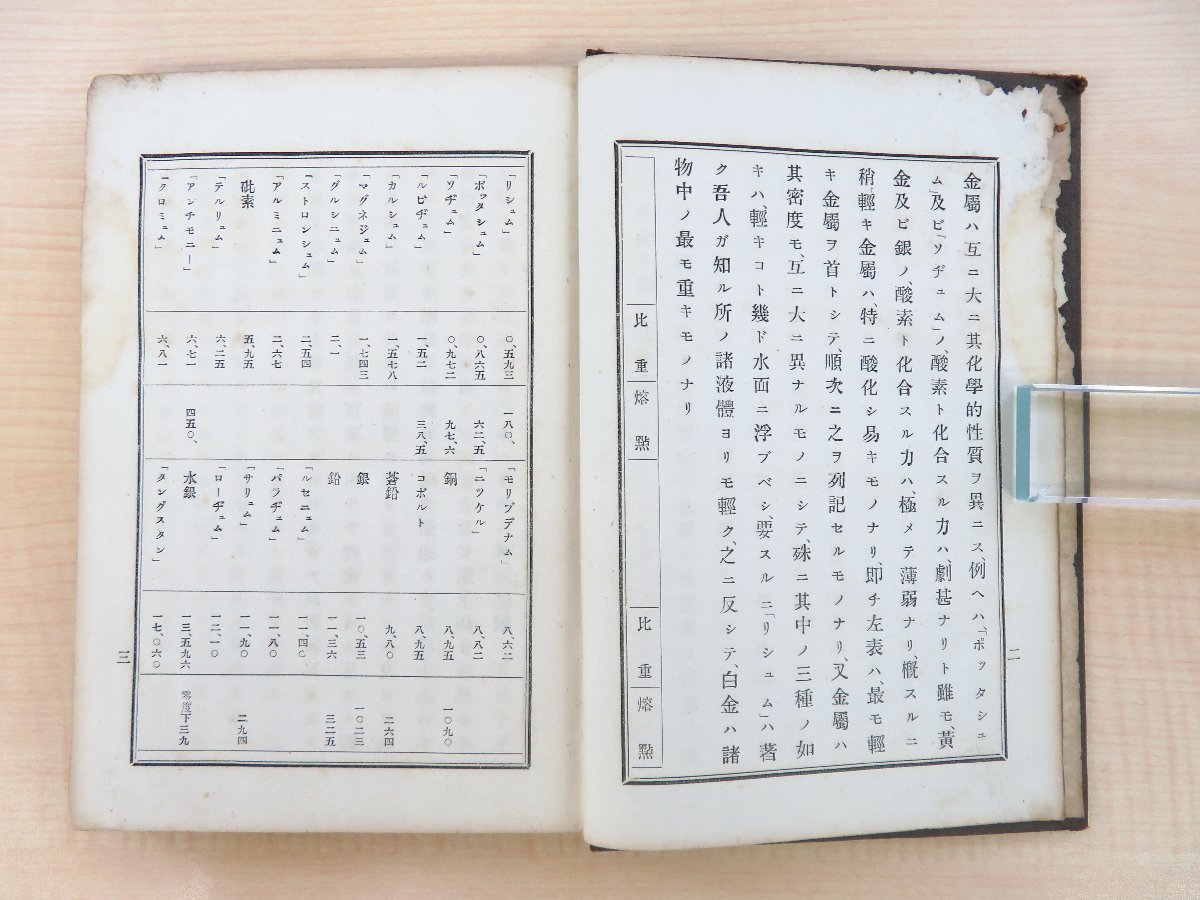 二
金屬ハ互ニ大ニ其化學的性質ヲ異ニス、例ヘハ、「ポッタシュ
ム」及ビ「ソヂュム」ノ、酸素ト化合スル力ハ、劇甚ナリト雖モ、黃
金及ビ銀ノ、酸素ト化合スル力ハ、極メテ薄弱ナリ、概スルニ
稍輕キ金屬ハ、特ニ酸化シ易キモノナリ、即チ左表ハ、最モ輕
キ金屬ヲ首トシテ、順次ニ之ヲ列記セルモノナリ、又金屬ハ
其密度モ、互ニ大ニ異ナルモノニシテ、殊ニ其中ノ三種ノ如
キハ、輕キコト幾ド水面ニ浮ブベシ、要スルニ「リシュム」ハ著
ク吾人ガ知ル所ノ諸液體ヨリモ輕ク、之ニ反シテ、白金ハ諸
物中ノ最モ重キモノナリ
比重 熔點 比重 熔點
「リシュム」 〇、五九三 一八〇、 「モリブデナム」 八、六二
「ポッタシュム」 〇、八六五 六二、五 「ニッケル」 八、八二
「ソヂュム」 〇、九七二 九七、六 銅 八、九五 一〇九〇
「ルビヂュム」 一、五二 三八、五 コボルト 八、九五
「カルシュム」 一、五七八 蒼鉛 九、八〇 二六四
「マグネジュム」 一、七四三 銀 一〇、五三 一〇二三
「グルシニュム」 二、一 鉛 一一、三六 三二五
「ストロンシュム」 二、五四 「ルセニュム」 一一、四〇
「アルミニュム」 二、六七 「パラヂュム」 一一、八〇
砒素 五、九五 「サリュム」 一一、九〇 二九四
「テルリュム」 六、二五 「ローヂュム」 一二、一〇
「アンチモニー」 六、七一 四五〇、 水銀 一三、五九六 零度下三九
「クロミュム」 六、八一 「タングスタン」 一七、〇六〇
三